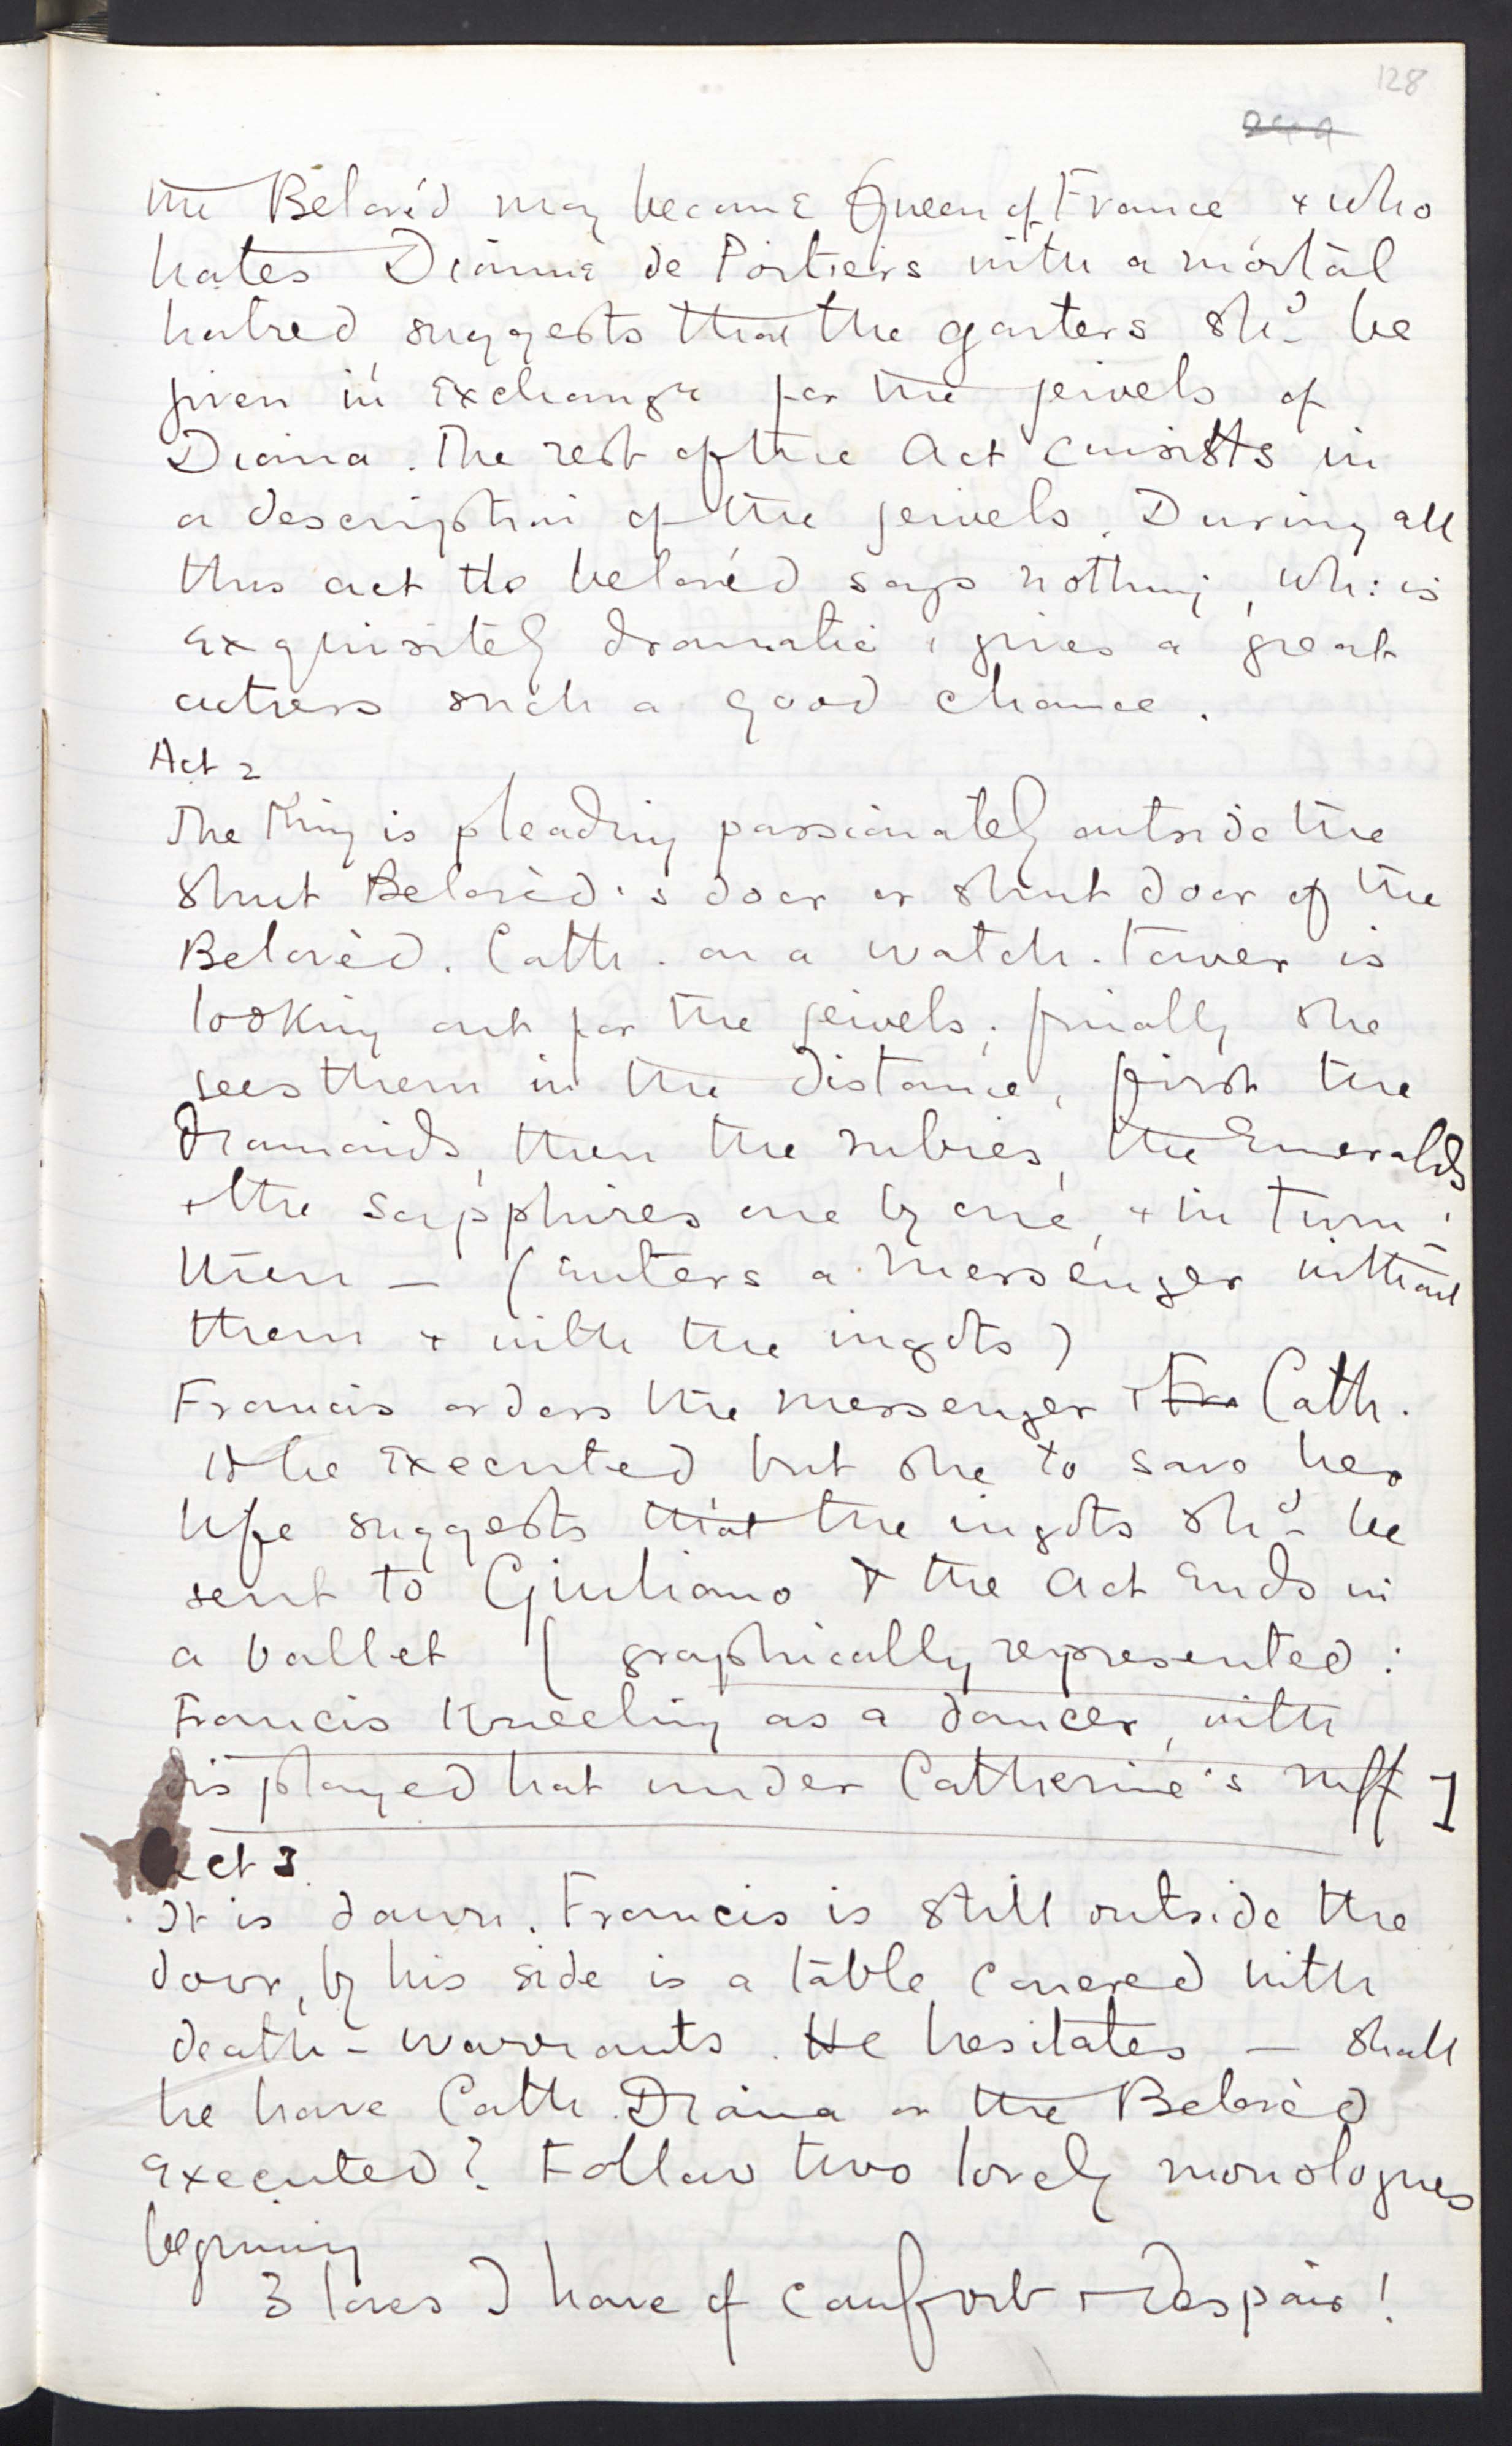 128
the Belovèd may become Queen of France & who
hates Dianna de Poitiers with a mortal
hatred, suggests that the garters shd be
given in exchange for the jewels of
Diana. The rest of the Act consists in
a description of the jewels. During all
this act the belovèd says nothing, wh: is
exquisitely dramatic & gives a great
actress such a good chance.
Act 2
The King is pleading passionately outside the
shut Belovèd's door or shut door of the
Belovèd. Cath. on a watch-tower is
looking out for the jewels, finally she
sees them in the distance, first the
diamonds, then the rubies, the Emeralds
& the sapphires one by one, & in turn;
then — (enters a messenger without
them & with the ingots)
Francis orders the messenger & Fra Cath.
to be executed but she to save her
life suggests that the ingots shd be
sent to Giuliano & the Act ends in
a ballet [graphically represented:
Francis kneeling as a dancer, with
his played hat under Catherine's ruff]
Act 3
It is dawn. Francis is still outside the
door, by his side is a table covered with
death-warrants. He hesitates — shall
he have Cath. Diana or the Belovèd
executed? Follow two lovely monologues
beginning
3 loves I have of comfort & despair!